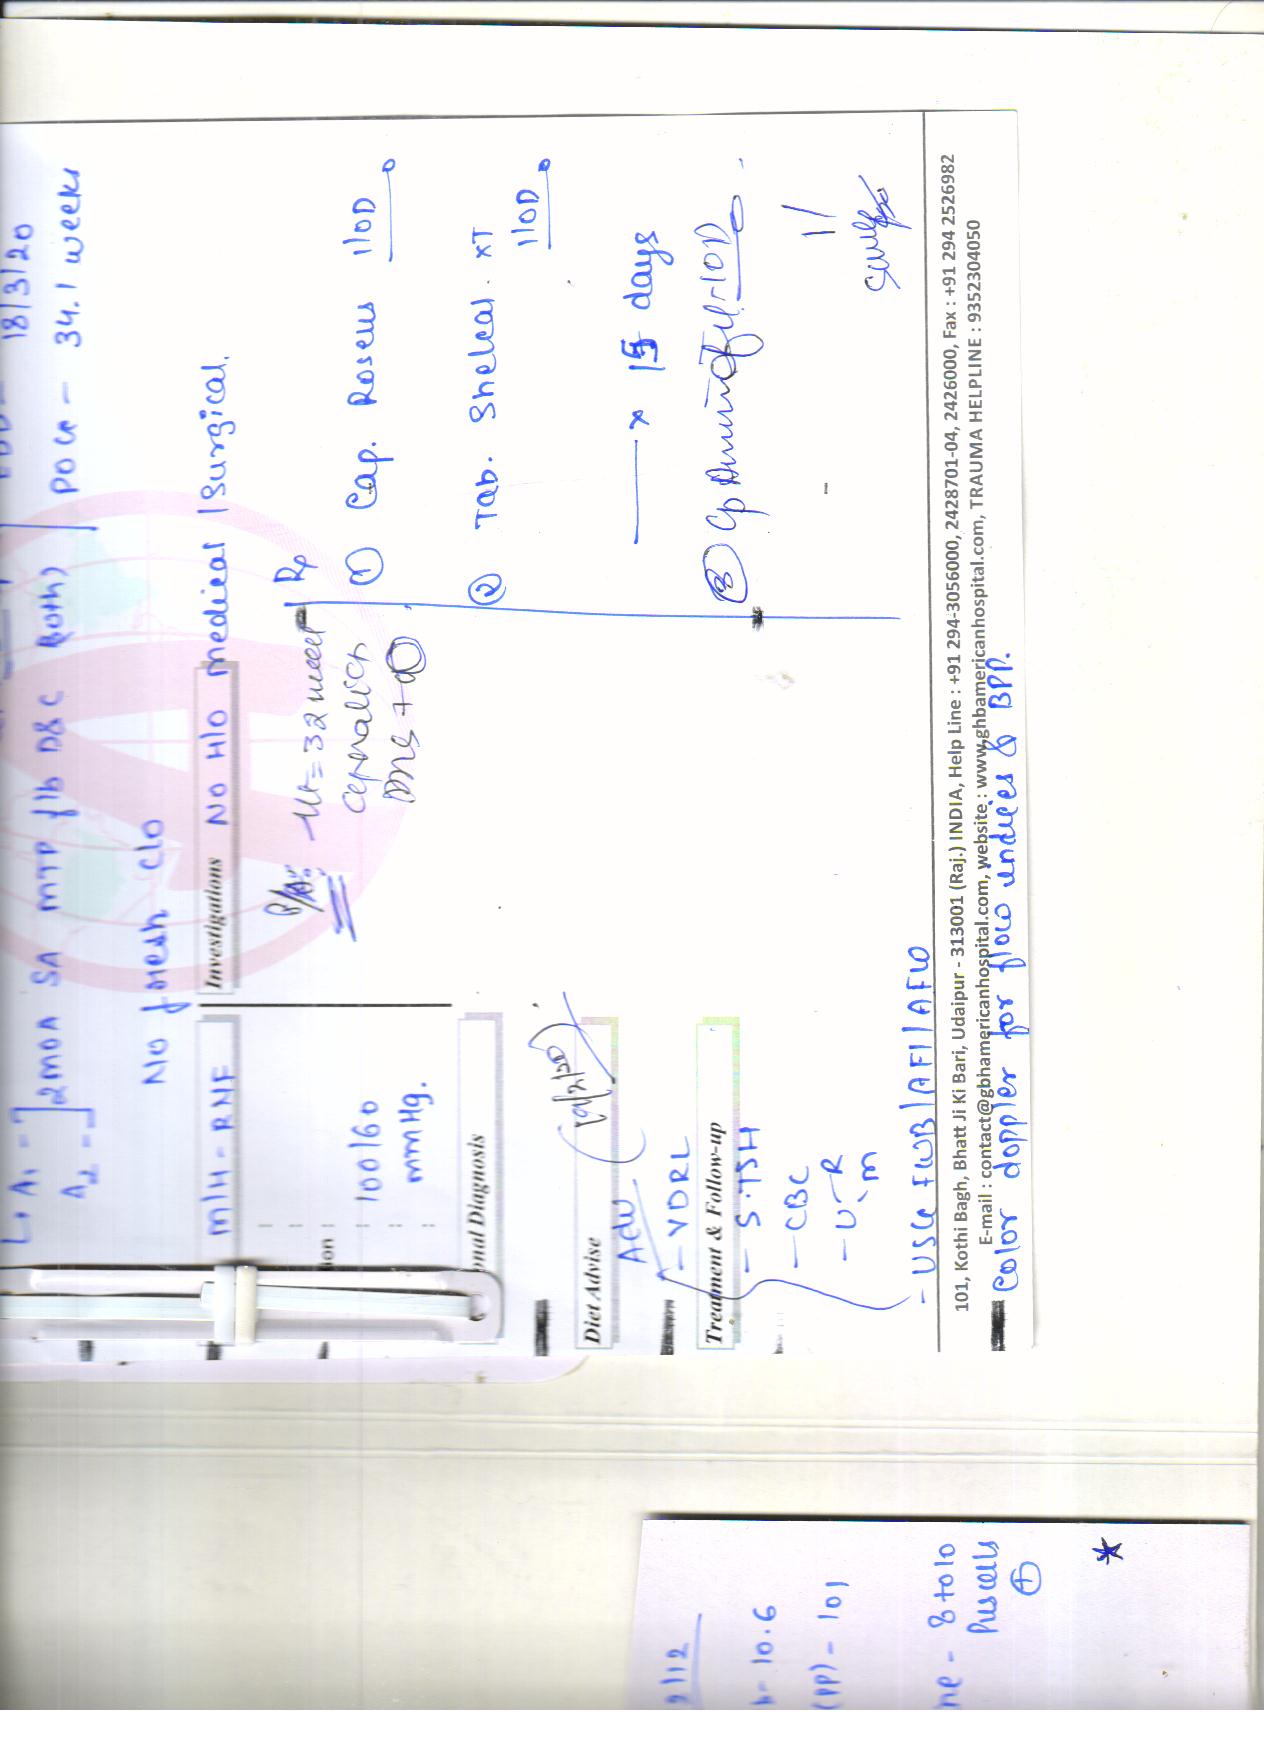 18/3/20
L A1 = ] 2MOA SA MTP f/b D&C (Both)
A2 = ]
POG - 34.1 weeks
No fresh c/o
M/H - RNF
Investigations
No H/O medical / Surgical.
100/60
mmHg.
P/A:
Ut = 32 week
Cephalic
FHS +
Rx
① Cap. Roseus 1 OD
② Tab. Shelcal. XT
1 OD
x 15 days
③
OD
onal Diagnosis
Diet Advise
Adv
- VDRL
Treatment & Follow-up
- S. TSH
- CBC
- U - R
M
- USG FWB/AFI/AFW
Color doppler for flow indices & BPP.
101, Kothi Bagh, Bhatt Ji Ki Bari, Udaipur - 313001 (Raj.) INDIA, Help Line : +91 294-3056000, 2428701-04, 2426000, Fax : +91 294 2526982
E-mail : contact@gbhamericanhospital.com, website : www.gbhamericanhospital.com, TRAUMA HELPLINE : 9352304050
9/12
b - 10.6
(PP) - 101
ne - 8 to 10
Puscells
⊕
*